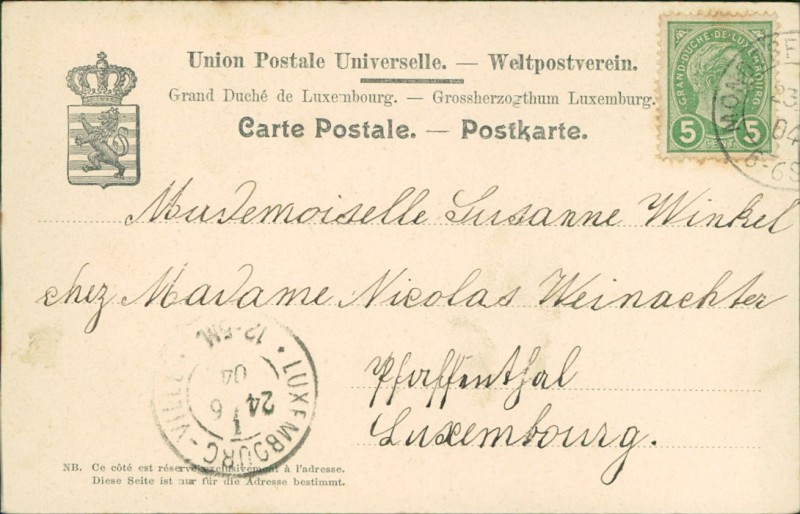 Union Postale Universelle. — Weltpostverein.
Grand Duché de Luxembourg. — Grossherzogthum Luxemburg.
Carte Postale. — Postkarte.
GRAND-DUCHÉ-DE-LUXEMBOURG
5 5
23
04
6-6S
Mademoiselle Susanne Winkel
chez Madame Nicolas Weinachter
Pfaffenthal
Luxembourg.
LUXEMBOURG-VILLE
24 6
04
12-5M.
NB. Ce côté est réservé exclusivement à l'adresse.
Diese Seite ist nur für die Adresse bestimmt.